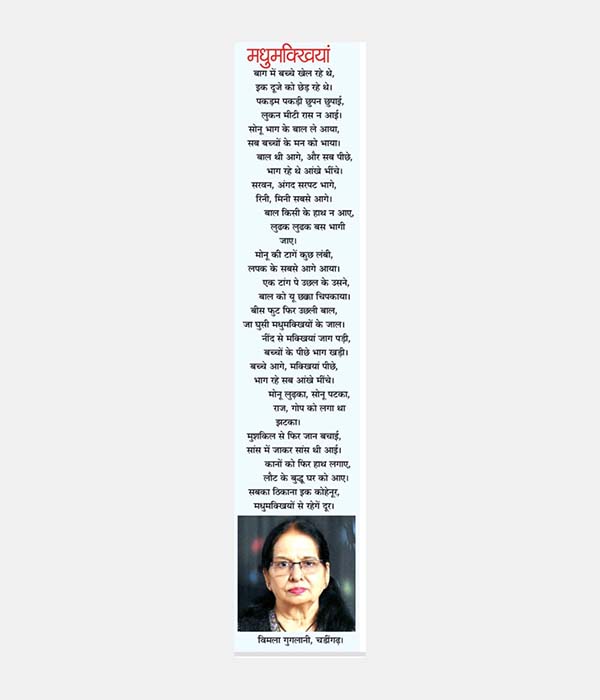 मधुमक्खियां
बाग में बच्चे खेल रहे थे,
इक दूजे को छेड़ रहे थे।
पकड़म पकड़ी छुपन छुपाई,
लुकन मीटी रास न आई।
सोनू भाग के बाल ले आया,
सब बच्चों के मन को भाया।
बाल थी आगे, और सब पीछे,
भाग रहे थे आंखे भींचे।
सरवन, अंगद सरपट भागे,
रिनी, मिनी सबसे आगे।
बाल किसी के हाथ न आए,
लुढक लुढक बस भागी
जाए।
मोनू की टागें कुछ लंबी,
लपक के सबसे आगे आया।
एक टांग पे उछल के उसने,
बाल को यू छक्का चिपकाया।
बीस फुट फिर उछली बाल,
जा घुसी मधुमक्खियों के जाल।
नींद से मक्खियां जाग पड़ी,
बच्चों के पीछे भाग खड़ी।
बच्चे आगे, मक्खियां पीछे,
भाग रहे सब आंखे मींचे।
मोनू लुढ़का, सोनू पटका,
राज, गोप को लगा था
झटका।
मुशकिल से फिर जान बचाई,
सांस में जाकर सांस थी आई।
कानों को फिर हाथ लगाए,
लौट के बुद्धू घर को आए।
सबका ठिकाना इक कोहेनूर,
मधुमक्खियों से रहेगें दूर।
विमला गुगलानी, चडींगढ़।